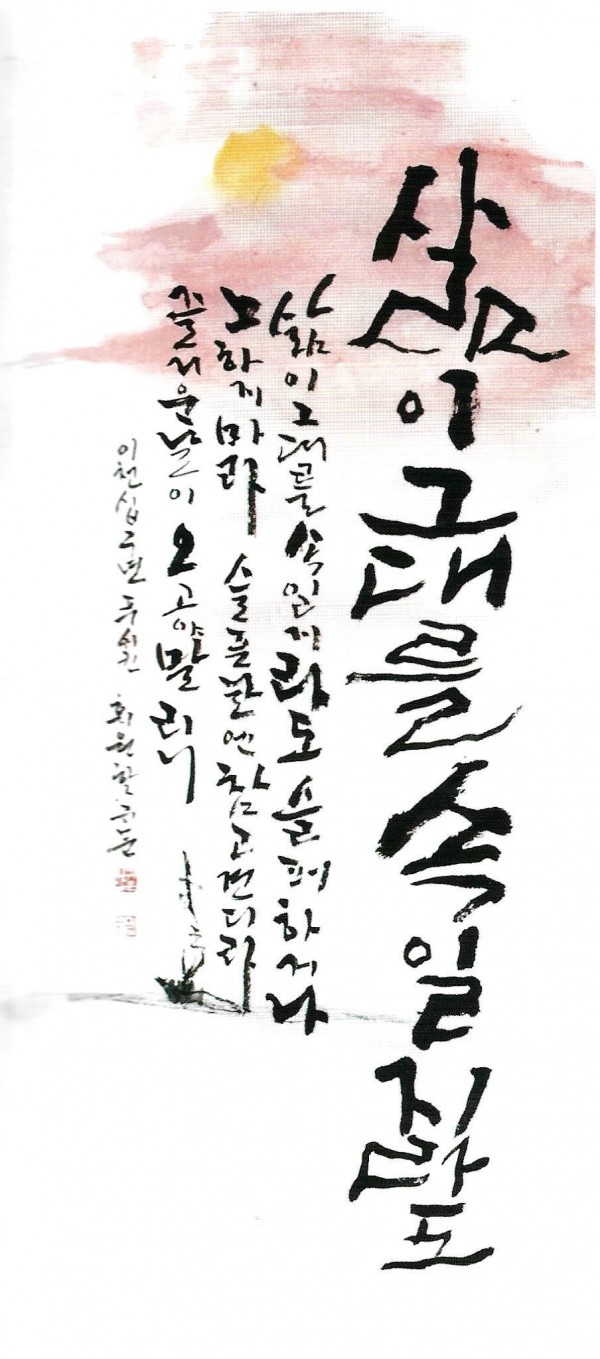 삶이그대를속일지라도
삶이그대를속일지라도 슬퍼하거나
노하지마라 슬픈날엔 참고견디라
즐거운날이 오고야말리니
이천십구년 푸쉬킨